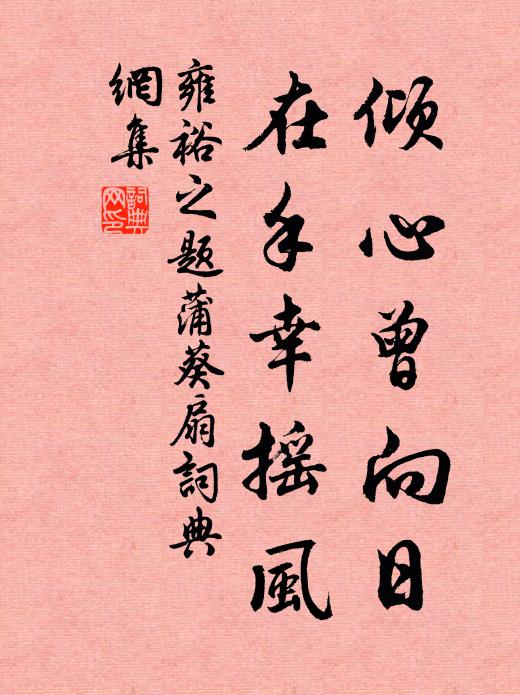 倾心曾向日
在手幸摇風
雍裕之题蒲葵扇詞典
網集
詞典网印